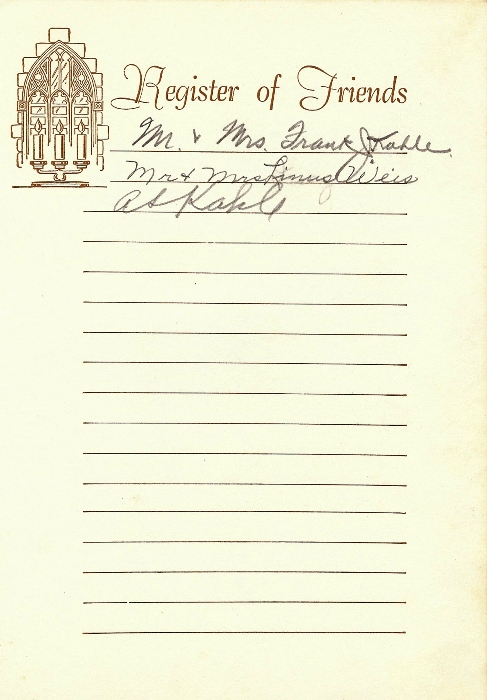 Register of Friends
Mr. & Mrs. Frank J Kahle.
Mr & Mrs Linus Weis
At Kahle